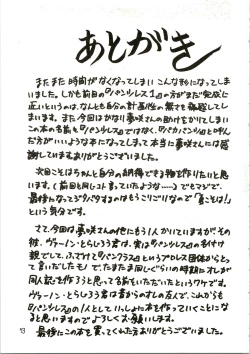 あとがき
またまた時間がなくなってしまいこんな事になってしま
いました。しかも前日の『パンツレス1』の方がまだ完成に
近いというのは、なんとも自分の計画性の無さを痛感してし
まいます。また今回はかなり夢咲さんの助けをかりてしまい
この本の名前も『パンツレス』ではなく、『バカパンツ』と呼ん
だ方がいいような本になってしまって本当に夢咲さんには感
謝していますありがとうございました。
次回こそはちゃんと自分の納得できる物を作りたいと思
います。(前回と同じよに言っていたような……)でもマジで、
最後になってジタバタするのはもうこりごりなので「夏こそは!」
という気分です。
さて、今回は夢咲さんの他にもう1人かいていますがその
彼、ヴァーノン・とらしろう君は、実は『パンツレス』の名付け
親でして、ふざけて『パンクラス』というプロレス団体からとっ
て言いだしたモノでたまたま同じぐらいの時期にオレが
同人誌を作ろうと思ってる前をいただいたというワケです。
ヴァーノン・とらしろう君は昔からのオレの友人で、これからも
『パンツレス』の1人としていっしょに本を作っていくことにな
ると思いますのでよろしくお願いします。
最後にこの本を買ってくれた方ありがとうございました。
13